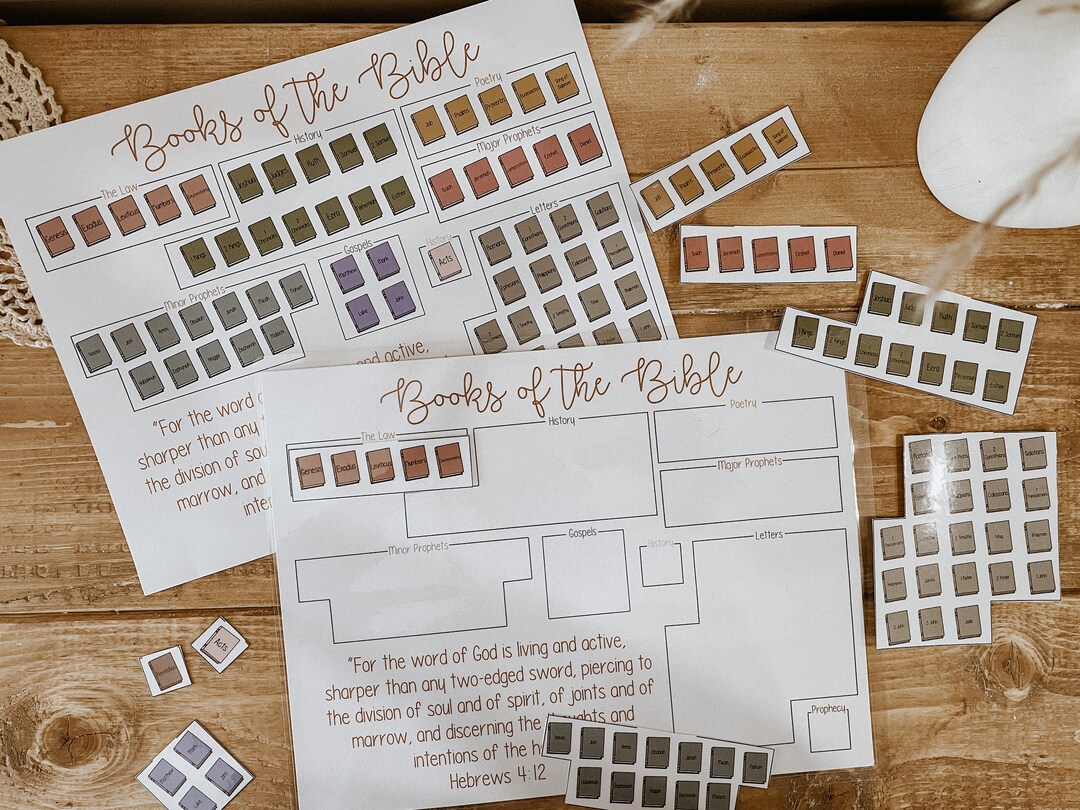 Books of the Bible
The Law
Genesis Exodus Leviticus Numbers
History
Joshua Judges Ruth 1 Samuel 2 Samuel
1 Kings 2 Kings 1 Chronicles 2 Chronicles Ezra Nehemiah Esther
Poetry
Job Psalms Proverbs Ecclesiastes Song of Solomon
Major Prophets
Isaiah Jeremiah Lamentations Ezekiel Daniel
Minor Prophets
Hosea Joel Amos Obadiah Jonah Micah Nahum
Habakkuk Zephaniah Haggai Zechariah Malachi
Gospels
Matthew Mark
Luke John
History
Acts
Letters
Romans 1 Corinthians 2 Corinthians Galatians
Ephesians Philippians Colossians
1 Timothy 2 Timothy Titus Philemon
and active,
"For the word o
sharper than any
the division of sou
marrow, and
inte
Job Psalms Proverbs Ecclesiastes Song of Solomon
Isaiah Jeremiah Lamentations Ezekiel Daniel
Joshua Ruth 1 Samuel 2 Samuel
1 Kings 2 Kings 1 Chronicles 2 Chronicles Ezra Nehemiah Esther
Books of the Bible
The Law
Genesis Exodus Leviticus Numbers
History
Poetry
Major Prophets
Minor Prophets
Gospels
History
Letters
Prophecy
"For the word of God is living and active,
sharper than any two-edged sword, piercing to
the division of soul and of spirit, of joints and of
marrow, and discerning the thoughts and
intentions of the h
Hebrews 4:12
2 Corinthians Galatians
Colossians
2 Timothy Titus Philemon
Hebrews James 1 Peter 2 Peter 1 John
2 John 3 John Jude
Acts
Matthew Mark
Luke John
Hosea Joel Amos Obadiah Jonah Micah Nahum
Habakkuk Zephaniah Haggai Zechariah Malachi